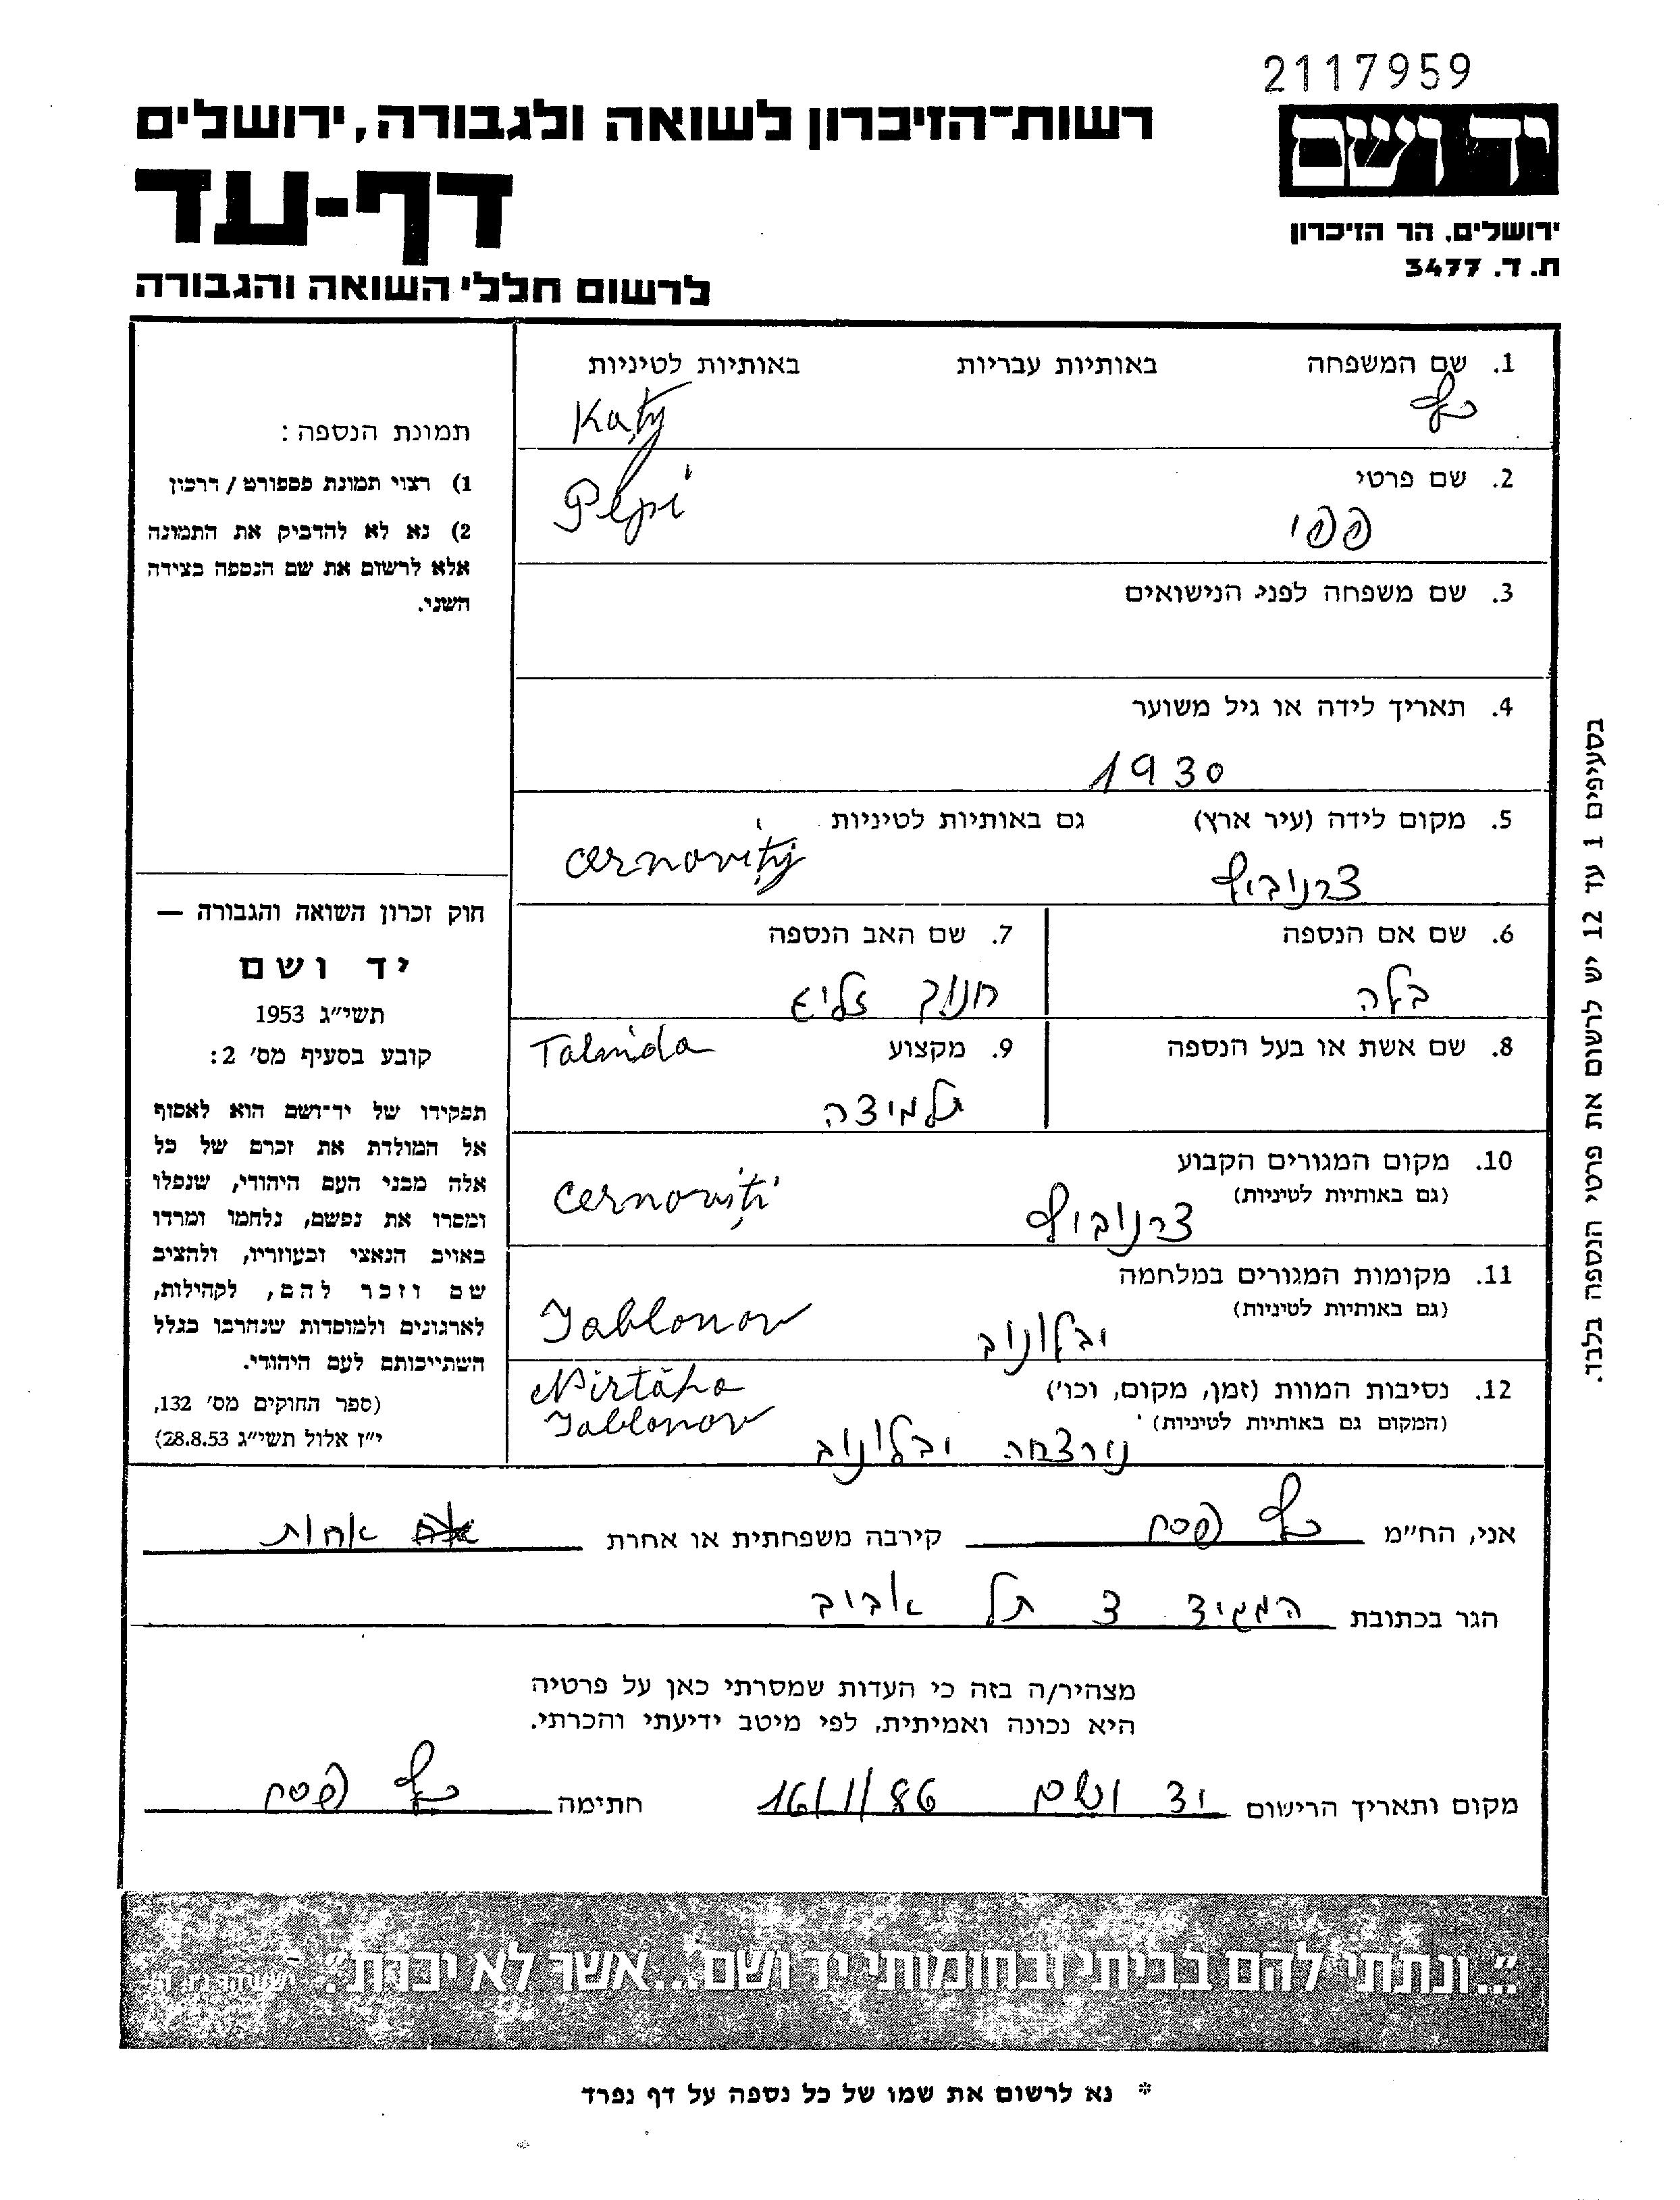 2117959
רשות־הזיכרון לשואה ולגבורה, ירושלים
יד ושם
דף-עד
ירושלים, הר הזיכרון
ת. ד. 3477
לרשום חללי השואה והגבורה
1. שם המשפחה באותיות עבריות באותיות לטיניות
כץ Katz
2. שם פרטי
פפי Pepi
3. שם משפחה לפני הנישואים
4. תאריך לידה או גיל משוער
1930
5. מקום לידה (עיר ארץ) גם באותיות לטיניות
צרנוביץ cernovitzi
6. שם אם הנספה
בלה
7. שם האב הנספה
חנוך זליג
8. שם אשת או בעל הנספה
9. מקצוע Talmida
תלמידה
10. מקום המגורים הקבוע
(גם באותיות לטיניות)
צרנוביץ cernoviți
11. מקומות המגורים במלחמה
(גם באותיות לטיניות)
יבלונוב Jablonov
12. נסיבות המוות (זמן, מקום, וכו')
(המקום גם באותיות לטיניות)
נירצחה יבלונוב
Nirtăha
Jablonov
תמונת הנספה:
1) רצוי תמונת פספורט / דרכון
2) נא לא להדביק את התמונה
אלא לרשום את שם הנספה בצידה
השני.
חוק זכרון השואה והגבורה —
יד ושם
תשי״ג 1953
קובע בסעיף מס׳ 2:
תפקידו של יד־ושם הוא לאסוף
אל המולדת את זכרם של כל
אלה מבני העם היהודי, שנפלו
ומסרו את נפשם, נלחמו ומרדו
באויב הנאצי ובעוזריו, ולהציב
שם וזכר להם, לקהילות,
לארגונים ולמוסדות שנחרבו בגלל
השתייכותם לעם היהודי.
(ספר החוקים מס׳ 132,
י״ז אלול תשי״ג 28.8.53)
בסעיפים 1 עד 12 יש לרשום את פרטי הנספה בלבד.
אני, הח״מ כץ פסח קירבה משפחתית או אחרת אחות
הגר בכתובת המגיד 3 תל אביב
מצהיר/ה בזה כי העדות שמסרתי כאן על פרטיה
היא נכונה ואמיתית, לפי מיטב ידיעתי והכרתי.
מקום ותאריך הרישום יד ושם 16/1/86 חתימה כץ פסח
״...ונתתי להם בביתי ובחומותי יד ושם...אשר לא יכרת״. ישעיהו נו, ה׳
* נא לרשום את שמו של כל נספה על דף נפרד